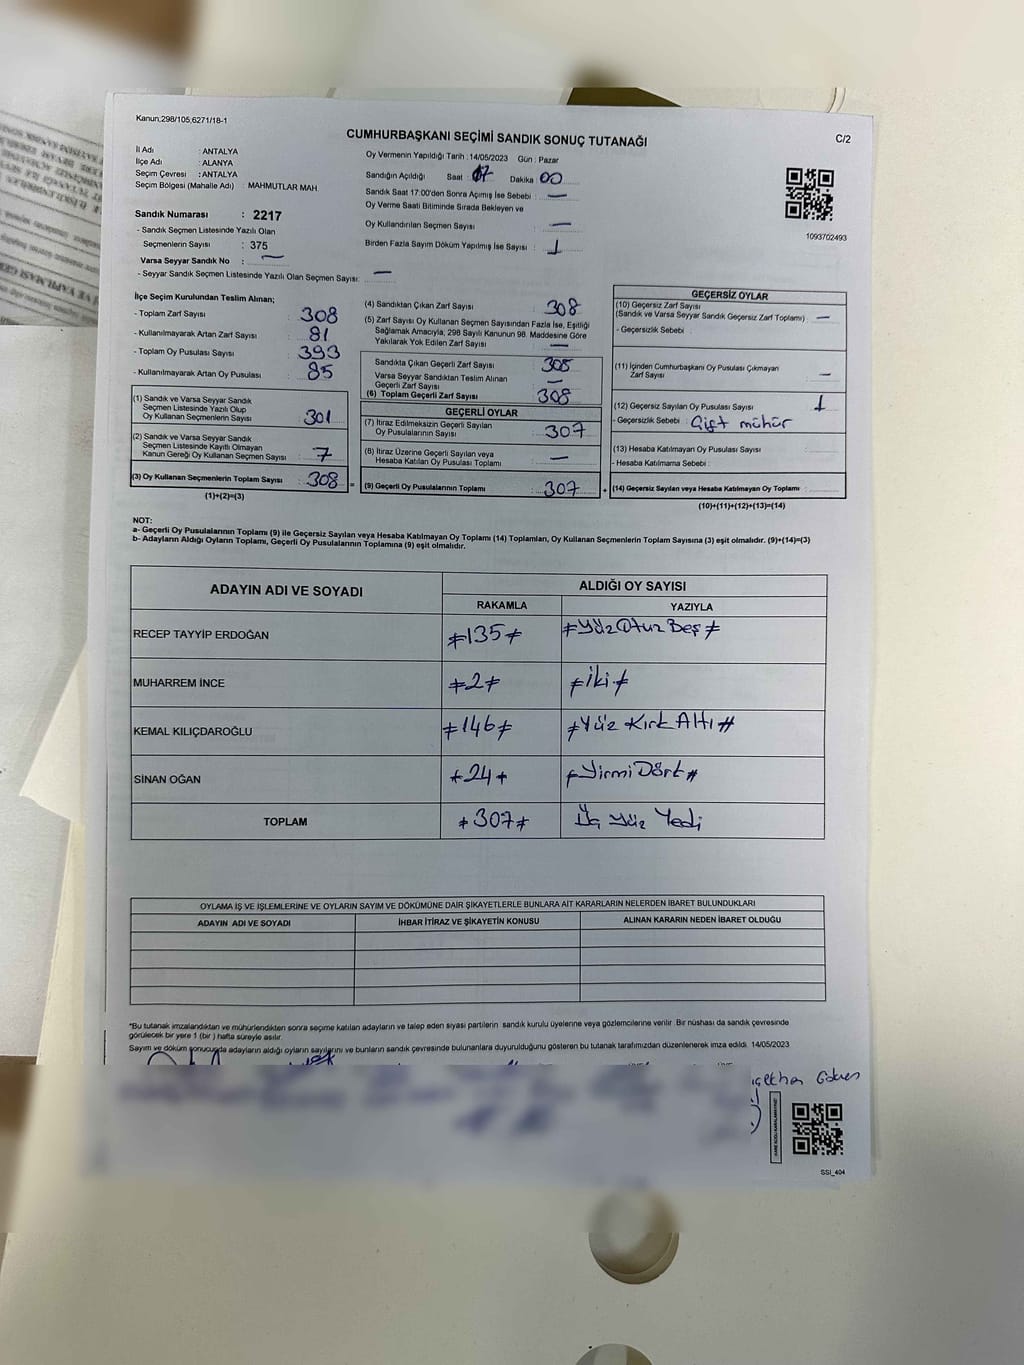 Kanun;298/105,6271/18-1
CUMHURBAŞKANI SEÇİMİ SANDIK SONUÇ TUTANAĞI
C/2
İl Adı : ANTALYA
İlçe Adı : ALANYA
Seçim Çevresi : ANTALYA
Seçim Bölgesi (Mahalle Adı) : MAHMUTLAR MAH.
Sandık Numarası : 2217
- Sandık Seçmen Listesinde Yazılı Olan
Seçmenlerin Sayısı : 375
Varsa Seyyar Sandık No : —
- Seyyar Sandık Seçmen Listesinde Yazılı Olan Seçmen Sayısı: —
Oy Vermenin Yapıldığı Tarih : 14/05/2023 Gün : Pazar
Sandığın Açıldığı Saat : 17 Dakika 00
Sandık Saat 17:00'den Sonra Açımış İse Sebebi : —
Oy Verme Saati Bitiminde Sırada Bekleyen ve
Oy Kullandırılan Seçmen Sayısı : —
Birden Fazla Sayım Döküm Yapılmış İse Sayısı : 1
1093702493
İlçe Seçim Kurulundan Teslim Alınan;
- Toplam Zarf Sayısı : 308
- Kullanılmayarak Artan Zarf Sayısı : 81
- Toplam Oy Pusulası Sayısı : 393
- Kullanılmayarak Artan Oy Pusulası : 85
(1) Sandık ve Varsa Seyyar Sandık
Seçmen Listesinde Yazılı Olup
Oy Kullanan Seçmenlerin Sayısı : 301
(2) Sandık ve Varsa Seyyar Sandık
Seçmen Listesinde Kayıtlı Olmayan
Kanun Gereği Oy Kullanan Seçmen Sayısı : 7
(3) Oy Kullanan Seçmenlerin Toplam Sayısı : 308
(1)+(2)=(3)
(4) Sandıktan Çıkan Zarf Sayısı : 308
(5) Zarf Sayısı Oy Kullanan Seçmen Sayısından Fazla İse, Eşitliği
Sağlamak Amacıyla, 298 Sayılı Kanunun 98. Maddesine Göre
Yakılarak Yok Edilen Zarf Sayısı : —
Sandıkta Çıkan Geçerli Zarf Sayısı : 308
Varsa Seyyar Sandıktan Teslim Alınan
Geçerli Zarf Sayısı : —
(6) Toplam Geçerli Zarf Sayısı : 308
GEÇERLİ OYLAR
(7) İtiraz Edilmeksizin Geçerli Sayılan
Oy Pusulalarının Sayısı : 307
(8) İtiraz Üzerine Geçerli Sayılan veya
Hesaba Katılan Oy Pusulası Toplamı : —
(9) Geçerli Oy Pusulalarının Toplamı : 307
GEÇERSİZ OYLAR
(10) Geçersiz Zarf Sayısı
(Sandık ve Varsa Seyyar Sandık Geçersiz Zarf Toplamı) : —
- Geçersizlik Sebebi :
(11) İçinden Cumhurbaşkanı Oy Pusulası Çıkmayan
Zarf Sayısı : —
(12) Geçersiz Sayılan Oy Pusulası Sayısı : 1
- Geçersizlik Sebebi : Çift mühür
(13) Hesaba Katılmayan Oy Pusulası Sayısı :
- Hesaba Katılmama Sebebi :
(14) Geçersiz Sayılan veya Hesaba Katılmayan Oy Toplamı :
(10)+(11)+(12)+(13)=(14)
NOT:
a- Geçerli Oy Pusulalarının Toplamı (9) ile Geçersiz Sayılan veya Hesaba Katılmayan Oy Toplamı (14) Toplamları, Oy Kullanan Seçmenlerin Toplam Sayısına (3) eşit olmalıdır. (9)+(14)=(3)
b- Adayların Aldığı Oyların Toplamı, Geçerli Oy Pusulalarının Toplamına (9) eşit olmalıdır.
ADAYIN ADI VE SOYADI
ALDIĞI OY SAYISI
RAKAMLA YAZIYLA
RECEP TAYYİP ERDOĞAN ≠135≠ ≠Yüz Otuz Beş≠
MUHARREM İNCE ≠2≠ ≠İki≠
KEMAL KILIÇDAROĞLU ≠146≠ ≠Yüz Kırk Altı#
SİNAN OĞAN +24+ ≠Yirmi Dört#
TOPLAM ≠307≠ Üç Yüz Yedi
OYLAMA İŞ VE İŞLEMLERİNE VE OYLARIN SAYIM VE DÖKÜMÜNE DAİR ŞİKAYETLERLE BUNLARA AİT KARARLARIN NELERDEN İBARET BULUNDUKLARI
ADAYIN ADI VE SOYADI İHBAR İTİRAZ VE ŞİKAYETİN KONUSU ALINAN KARARIN NEDEN İBARET OLDUĞU
*Bu tutanak imzalandıktan ve mühürlendikten sonra seçime katılan adayların ve talep eden siyasi partilerin sandık kurulu üyelerine veya gözlemcilerine verilir. Bir nüshası da sandık çevresinde
görülecek bir yere 1 (bir ) hafta süreyle asılır.
Sayım ve döküm sonucunda adayların aldığı oyların sayılarını ve bunların sandık çevresinde bulunanlara duyurulduğunu gösteren bu tutanak tarafımızdan düzenlenerek imza edildi. 14/05/2023
SSI_404